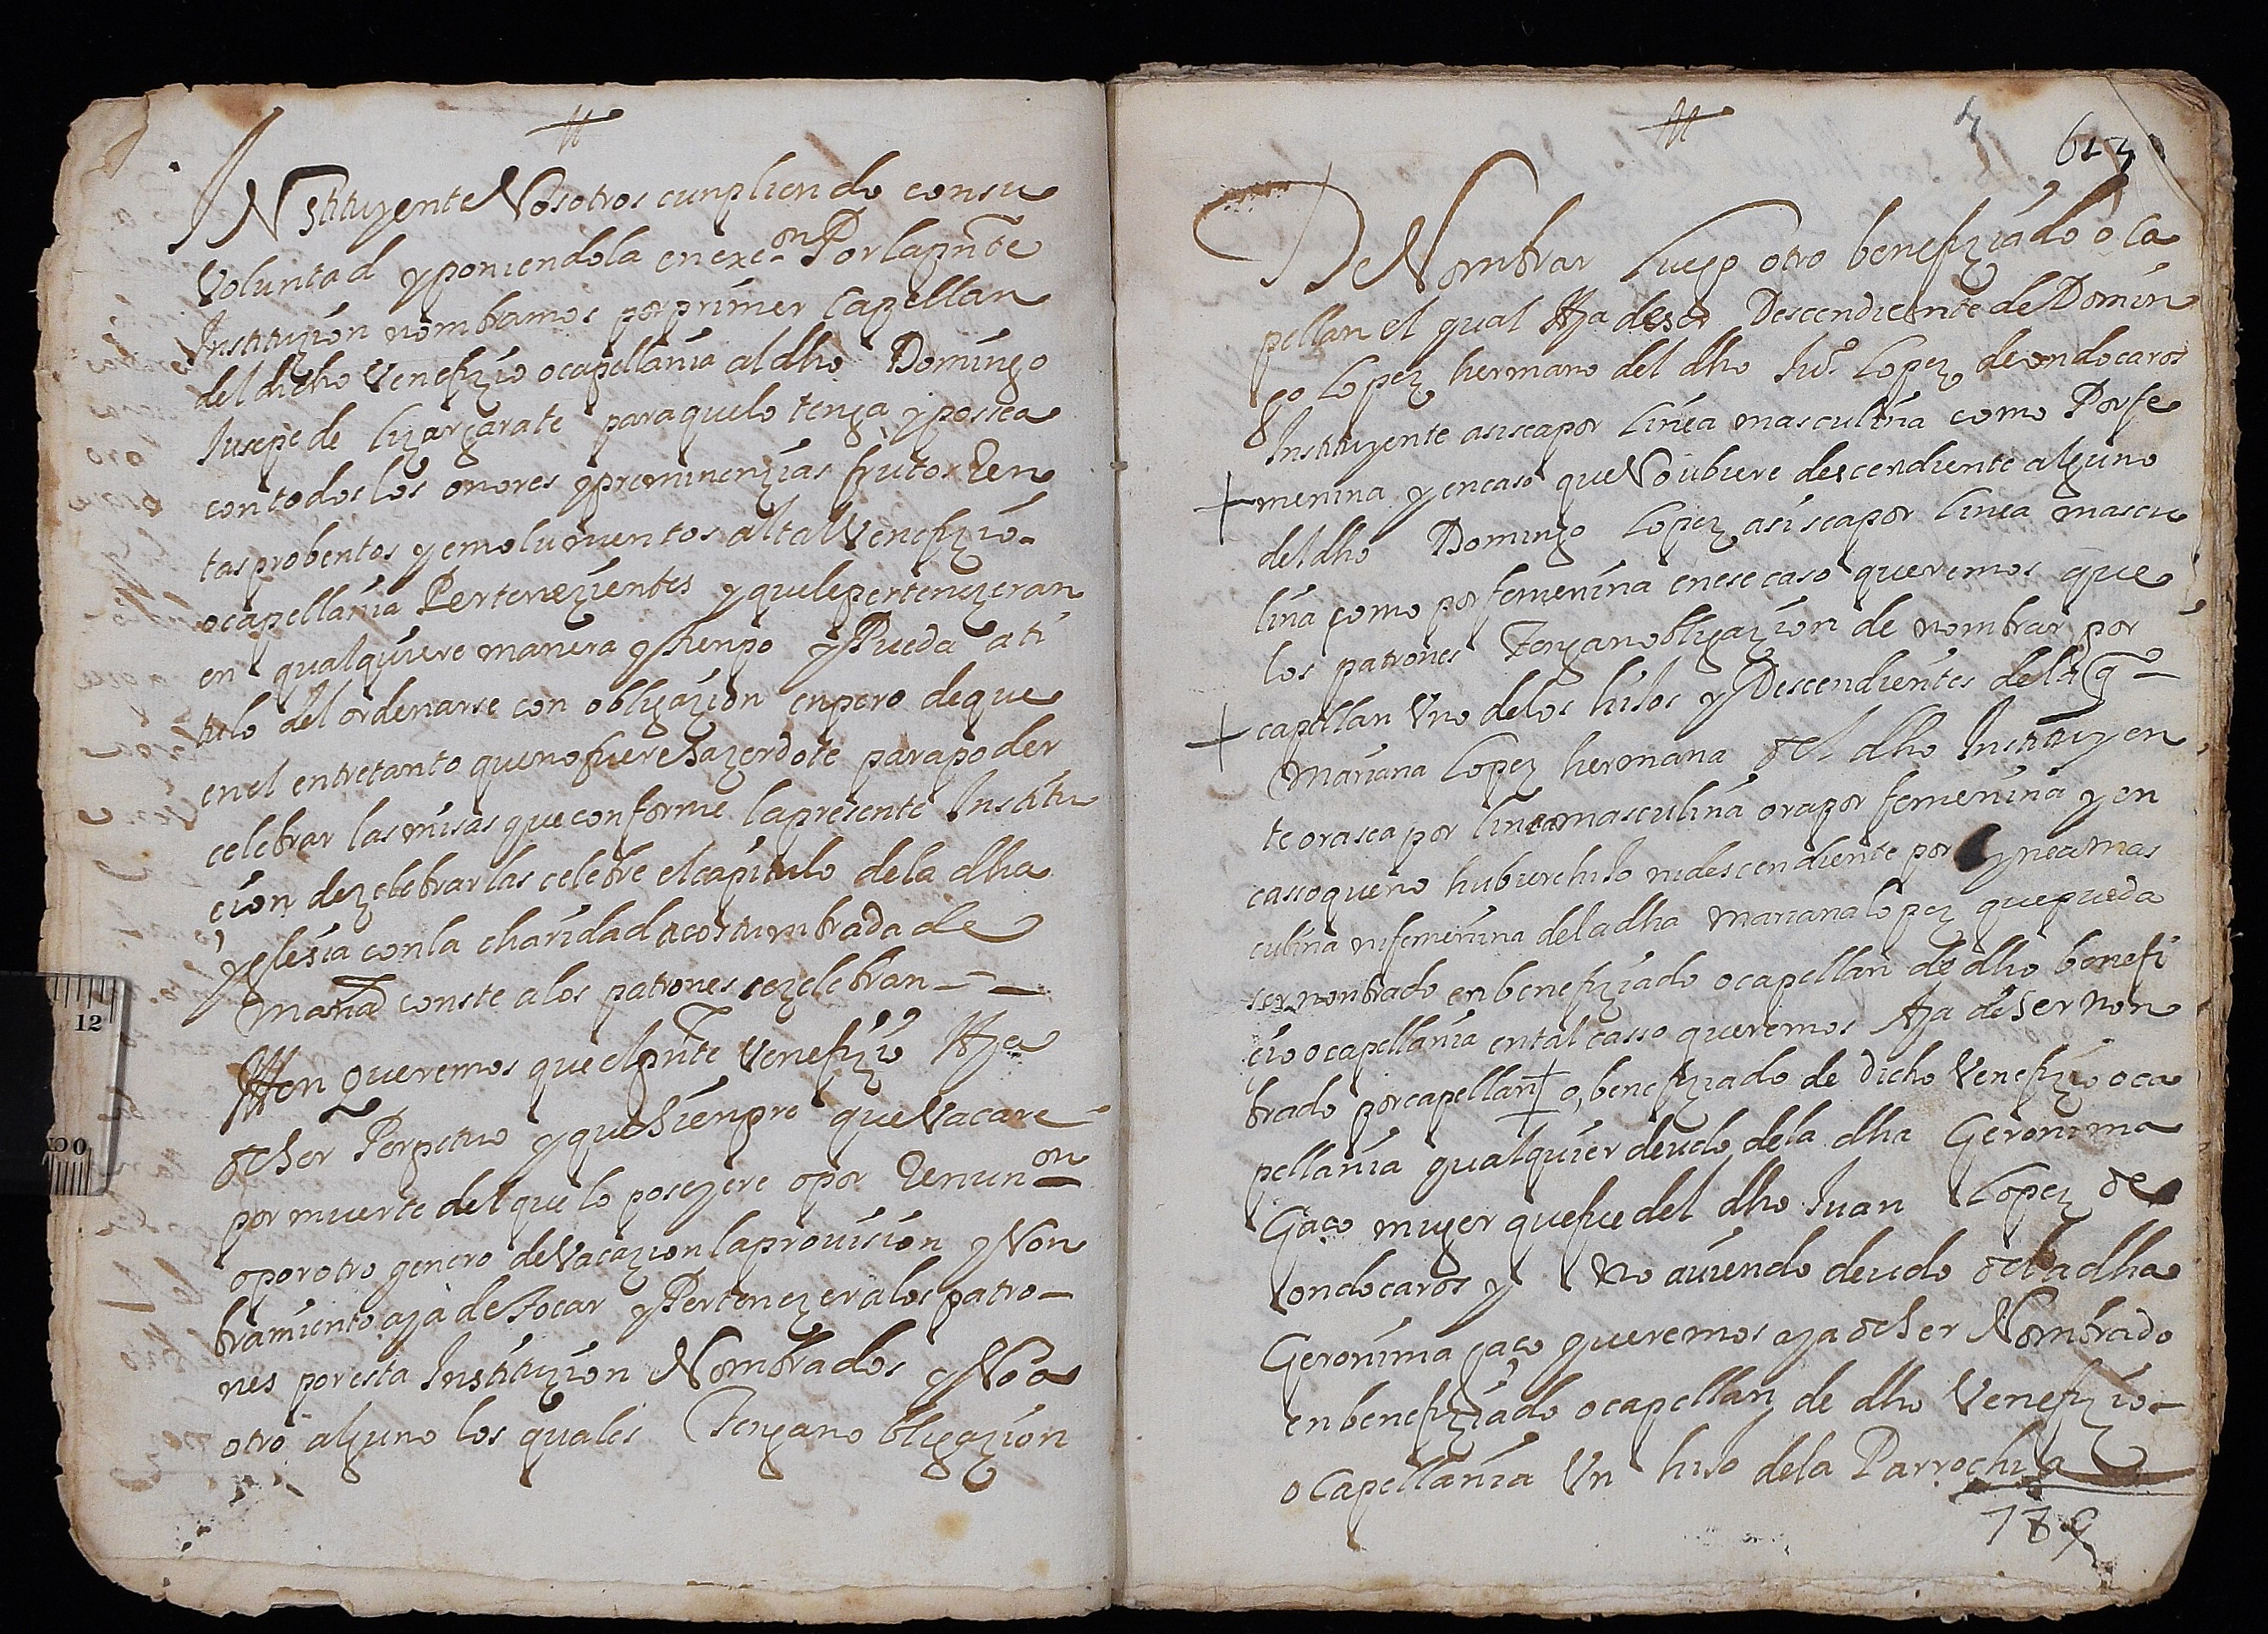 Instituyente Nosotros cunpliendo consu
Voluntad y poniendola en exe.on Por la pnte
Instituzion nombramos por primer Capellan
del dicho Venefizio o capellania al dho Domingo
Jusepe de lizargarate para que lo tenga y possea
con todos los onores y preminenzias frutos Ren
tas probentos y emolumentos al tal Venefizio
o capellania Pertenezientes y que le pertenezeran
en qualquiere manera y tienpo y Pueda a ti
tulo del ordenarse con obligazion enpero de que
en el entretanto que no fuere Sazerdote para poder
celebrar las misas que conforme la presente Institu
cion de zelebrar las celebre el capitulo de la dha
yglesia con la charidad acostumbrada de
mana conste a los patrones se zelebran
Item queremos que el pnte Venefizio Aya
de Ser Perpetuo y que Sienpre que Vacare
por muerte del que lo poseyere o por Renunon
o por otro genero de Vacazion la provision y Non
bramiento aya de tocar y Pertenezer a los patro
nes por esta Instituzion Nombrados y No a
otro alguno los quales Tengan obligazion
7
613
De Nombrar luego otro benefiziado o ca
pellan el qual Aya de ser Descendiente de Domin
go Lopez hermano del dho Ju.o Lopez de ondocaros
Instituyente asi sea por linea masculina como Por fe
menina y en caso que No ubiere descendiente alguno
del dho Domingo Lopez asi sea por linea mascu
lina como por femenina en ese caso queremos que
los patrones Tengan obligazion de nombrar por
capellan Uno de los hijos y Descendientes de la q
Mariana Lopez hermana del dho Instituyen
te ora sea por linea masculina ora por femenina y en
casso que no hubiere hijo ni descendiente por lynea mas
culina ni femenina de la dha Mariana lopez que pueda
ser nonbrado en benefiziado o capellan de dho benefi
cio o capellania en tal casso queremos Aya de ser non
brado por capellan o, benefiziado de dicho Venefizio o ca
pellania qualquier deudo de la dha Geronima
Gaço muger que fue del dho Juan Lopez de
ondocaros y No aviendo deudo de la dha
Geronima gaço queremos aya de Ser Nombrado
en benefiziado o capellan de dho Venefizio
o Capellania Un hijo de la Parrochia
179